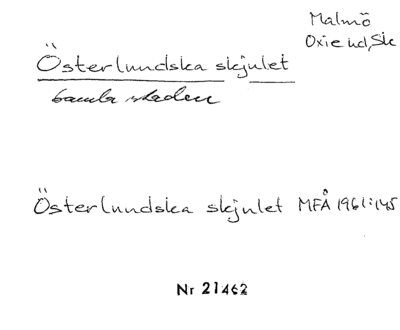 Malmö
Oxie hd, Sk
Österlundska skjulet
Gamla staden
Österlundska skjulet MFÅ 1961:145
Nr 21462